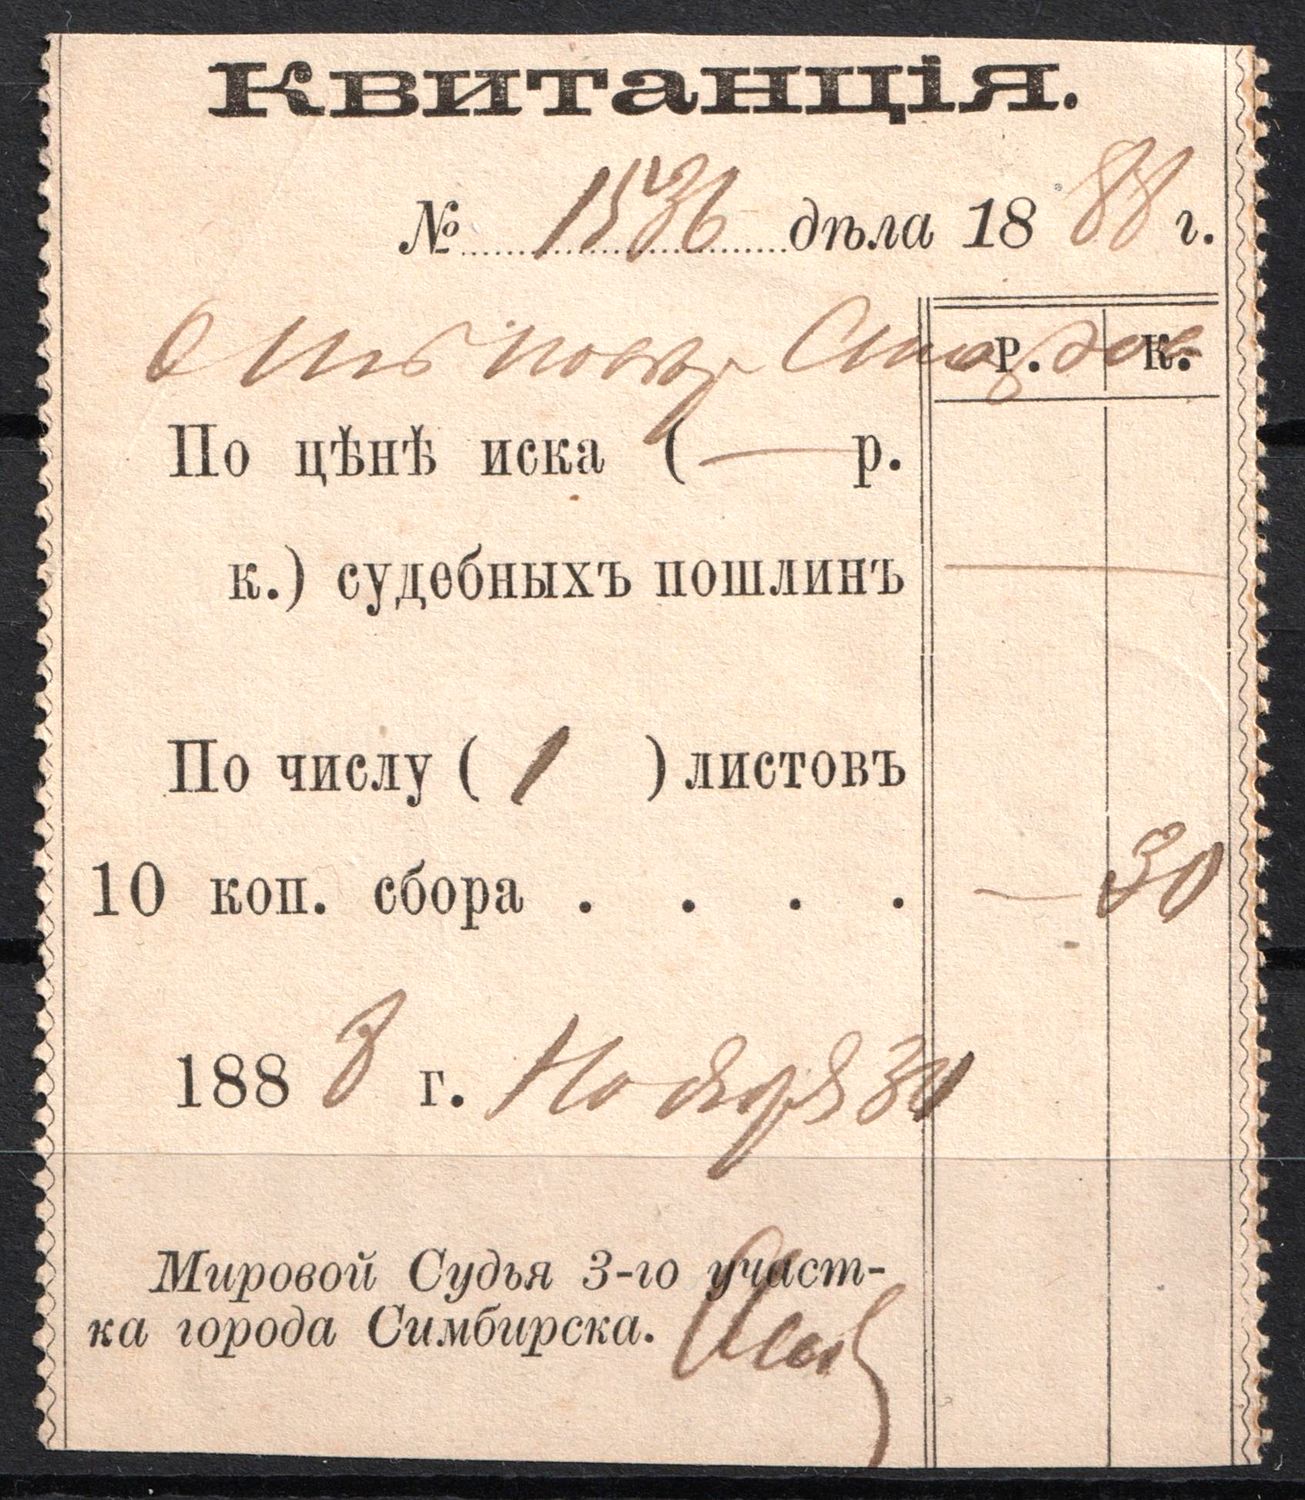 Квитанція.
№ 1536 дѣла 1888 г.
О
р. к.
По цѣнѣ иска ( — р.
к.) судебныхъ пошлинъ —
По числу ( 1 ) листовъ
10 коп. сбора . . . . — 30
1888 г. Ноября 30
Мировой Судья 3-го участ-
ка города Симбирска.